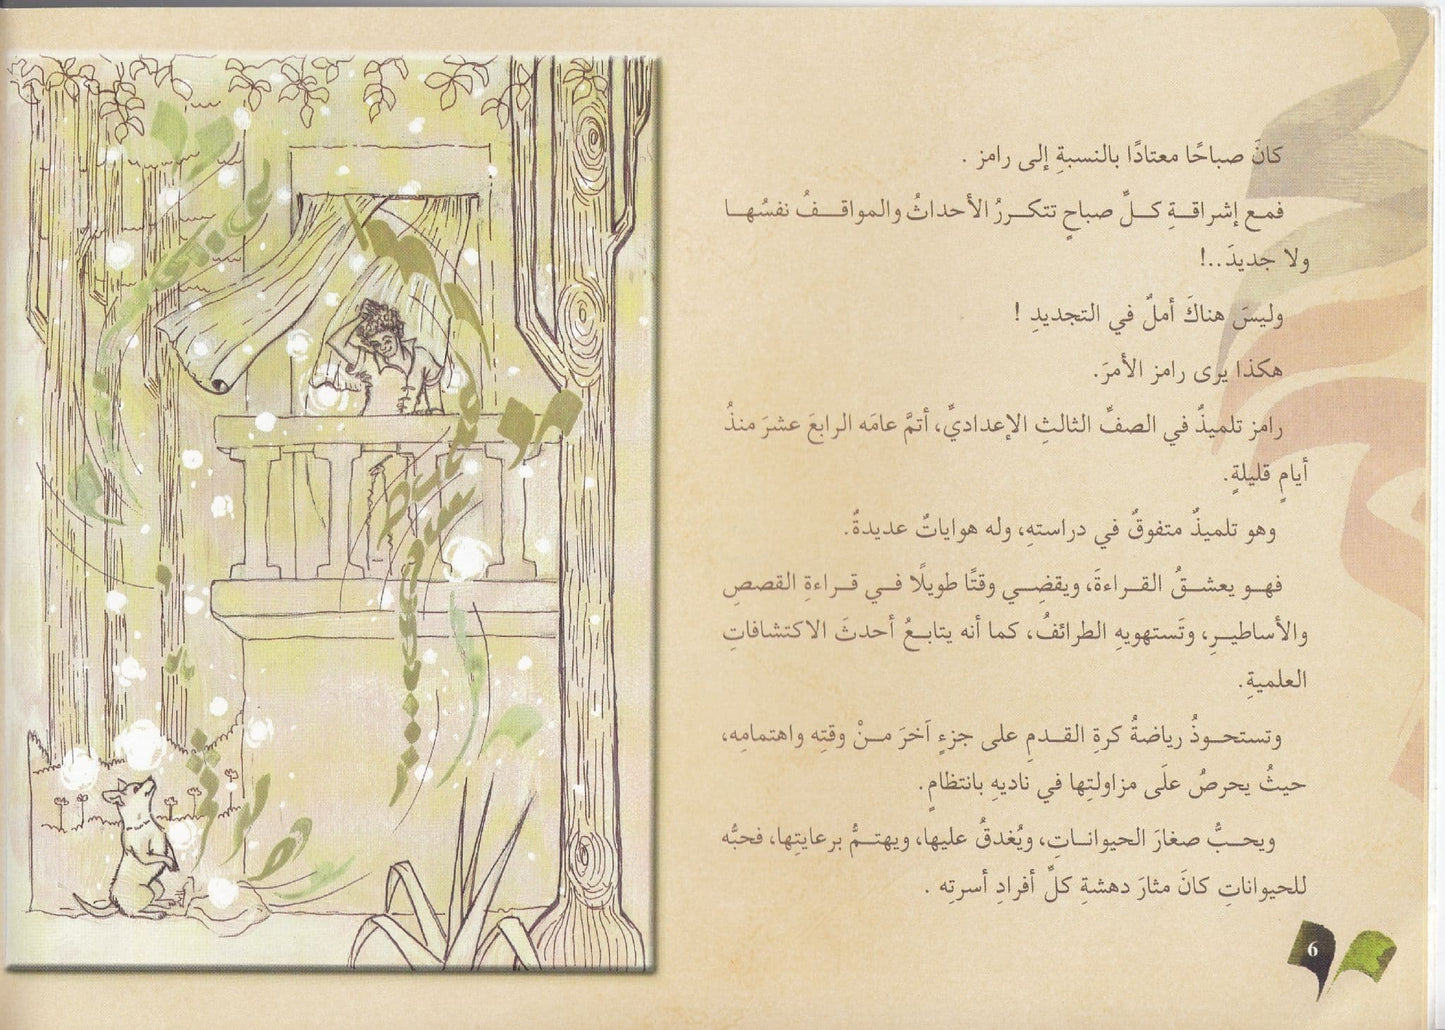 كانَ صباحًا معتادًا بالنسبةِ إلى رامز .
فمع إشراقةِ كلِّ صباحٍ تتكررُ الأحداثُ والمواقفُ نفسُها
ولا جديدَ..!
وليسَ هناكَ أملٌ في التجديدِ !
هكذا يرى رامز الأمرَ.
رامز تلميذٌ في الصفِّ الثالثِ الإعداديِّ، أتمَّ عامَه الرابعَ عشرَ منذُ
أيامٍ قليلةٍ.
وهو تلميذٌ متفوقٌ في دراستهِ، وله هواياتٌ عديدةٌ.
فهو يعشقُ القراءةَ، ويقضِي وقتًا طويلًا في قراءةِ القصصِ
والأساطيرِ، وتَستهويهِ الطرائفُ، كما أنه يتابعُ أحدثَ الاكتشافاتِ
العلميةِ.
وتستحوذُ رياضةُ كرةِ القدمِ على جزءٍ آخرَ منْ وقتِه واهتمامِه،
حيثُ يحرصُ علَى مزاولتِها في ناديهِ بانتظامٍ.
ويحبُّ صغارَ الحيواناتِ، ويُغدقُ عليها، ويهتمُّ برعايتِها، فحبُّه
للحيواناتِ كانَ مثارَ دهشةِ كلِّ أفرادِ أسرتِه .
6